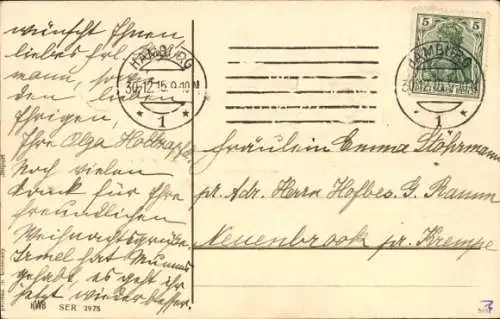 wünscht Ihnen
liebes Frl.
mann, sowie
den lieben
Ihrigen,
Ihre Olga Holzapfel
Noch vielen
Dank für Ihre
freundlichen
Weihnachtsgrüße.
hat Mumms
gehabt, es geht ihr
jetzt wieder besser.
HAMBURG
30.12.15.9-10N
* 1 *
HAMBURG
* 1 *
5 5
DEUTSCHES REICH
Fräulein Emma Stöhrmann
pr. Adr. Herrn Hofbes. G. Ramm
Neuenbrook pr. Krempe
HWB SER 2975